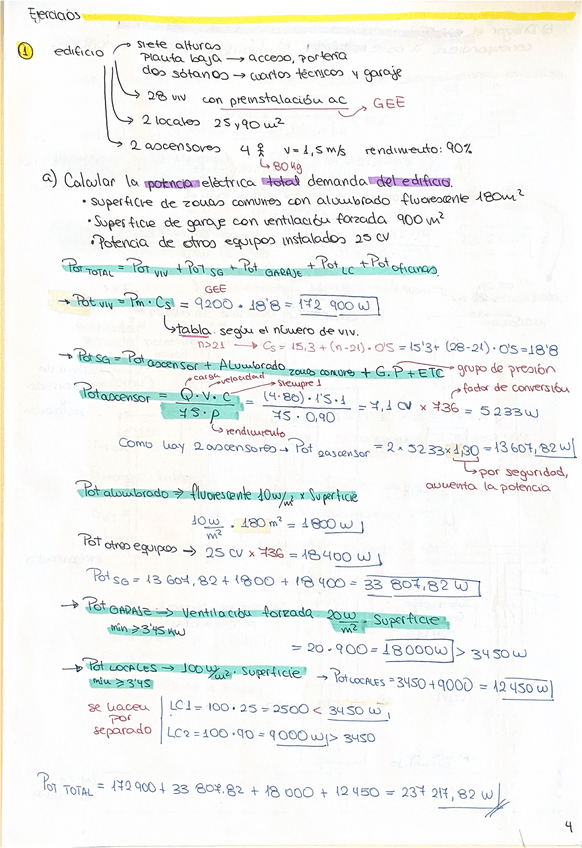 Ejercicios
1 edificio → siete alturas
Planta baja → acceso, portería
dos sótanos → cuartos técnicos y garaje
→ 28 viv con preinstalación ac → GEE
→ 2 locales 25 y 90 m²
→ 2 ascensores 4 v = 1,5 m/s rendimiento: 90%
↳ 80 kg
a) Calcular la potencia eléctrica total demanda del edificio.
• Superficie de zonas comunes con alumbrado fluorescente 180 m²
• Superficie de garaje con ventilación forzada 900 m²
• Potencia de otros equipos instalados 25 CV
Pot TOTAL = Pot VIV + Pot SG + Pot GARAJE + Pot LC + Pot oficinas
GEE
→ Pot VIV = Pm · Cs = 9200 · 18'8 = 172 900 W
↳ tabla según el número de viv.
n>21 → Cs = 15,3 + (n-21) · 0'5 = 15'3 + (28-21) · 0'5 = 18'8
→ Pot SG = Pot ascensor + Alumbrado zonas comunes + G.P + ETC → grupo de presión
carga velocidad siempre 1 factor de conversión
Pot ascensor = Q · V · C / 75 · p = (4·80) · 1'5 · 1 / 75 · 0,90 = 7,1 CV × 736 = 5233 W
↳ rendimiento
Como hay 2 ascensores → Pot 2ascensor = 2 × 5233 × 1,30 = 13 607,82 W
↳ por seguridad,
aumenta la potencia
Pot alumbrado ⇒ fluorescente 10 w/m² × Superficie
10 w/m² · 180 m² = 1800 W
Pot otros equipos → 25 CV × 736 = 18 400 W
Pot SG = 13 607,82 + 1800 + 18 400 = 33 807,82 W
→ Pot GARAJE → Ventilación forzada 20 w/m² · Superficie
min ≥ 3'45 KW
= 20 · 900 = 18 000 W > 3450 W
→ Pot LOCALES → 100 W/m² · Superficie → Pot LOCALES = 3450 + 9000 = 12 450 W
min ≥ 3'45
se hacen por separado
LC1 = 100 · 25 = 2500 < 3450 W
LC2 = 100 · 90 = 9000 W > 3450
Pot TOTAL = 172 900 + 33 807.82 + 18 000 + 12 450 = 237 217,82 W
4